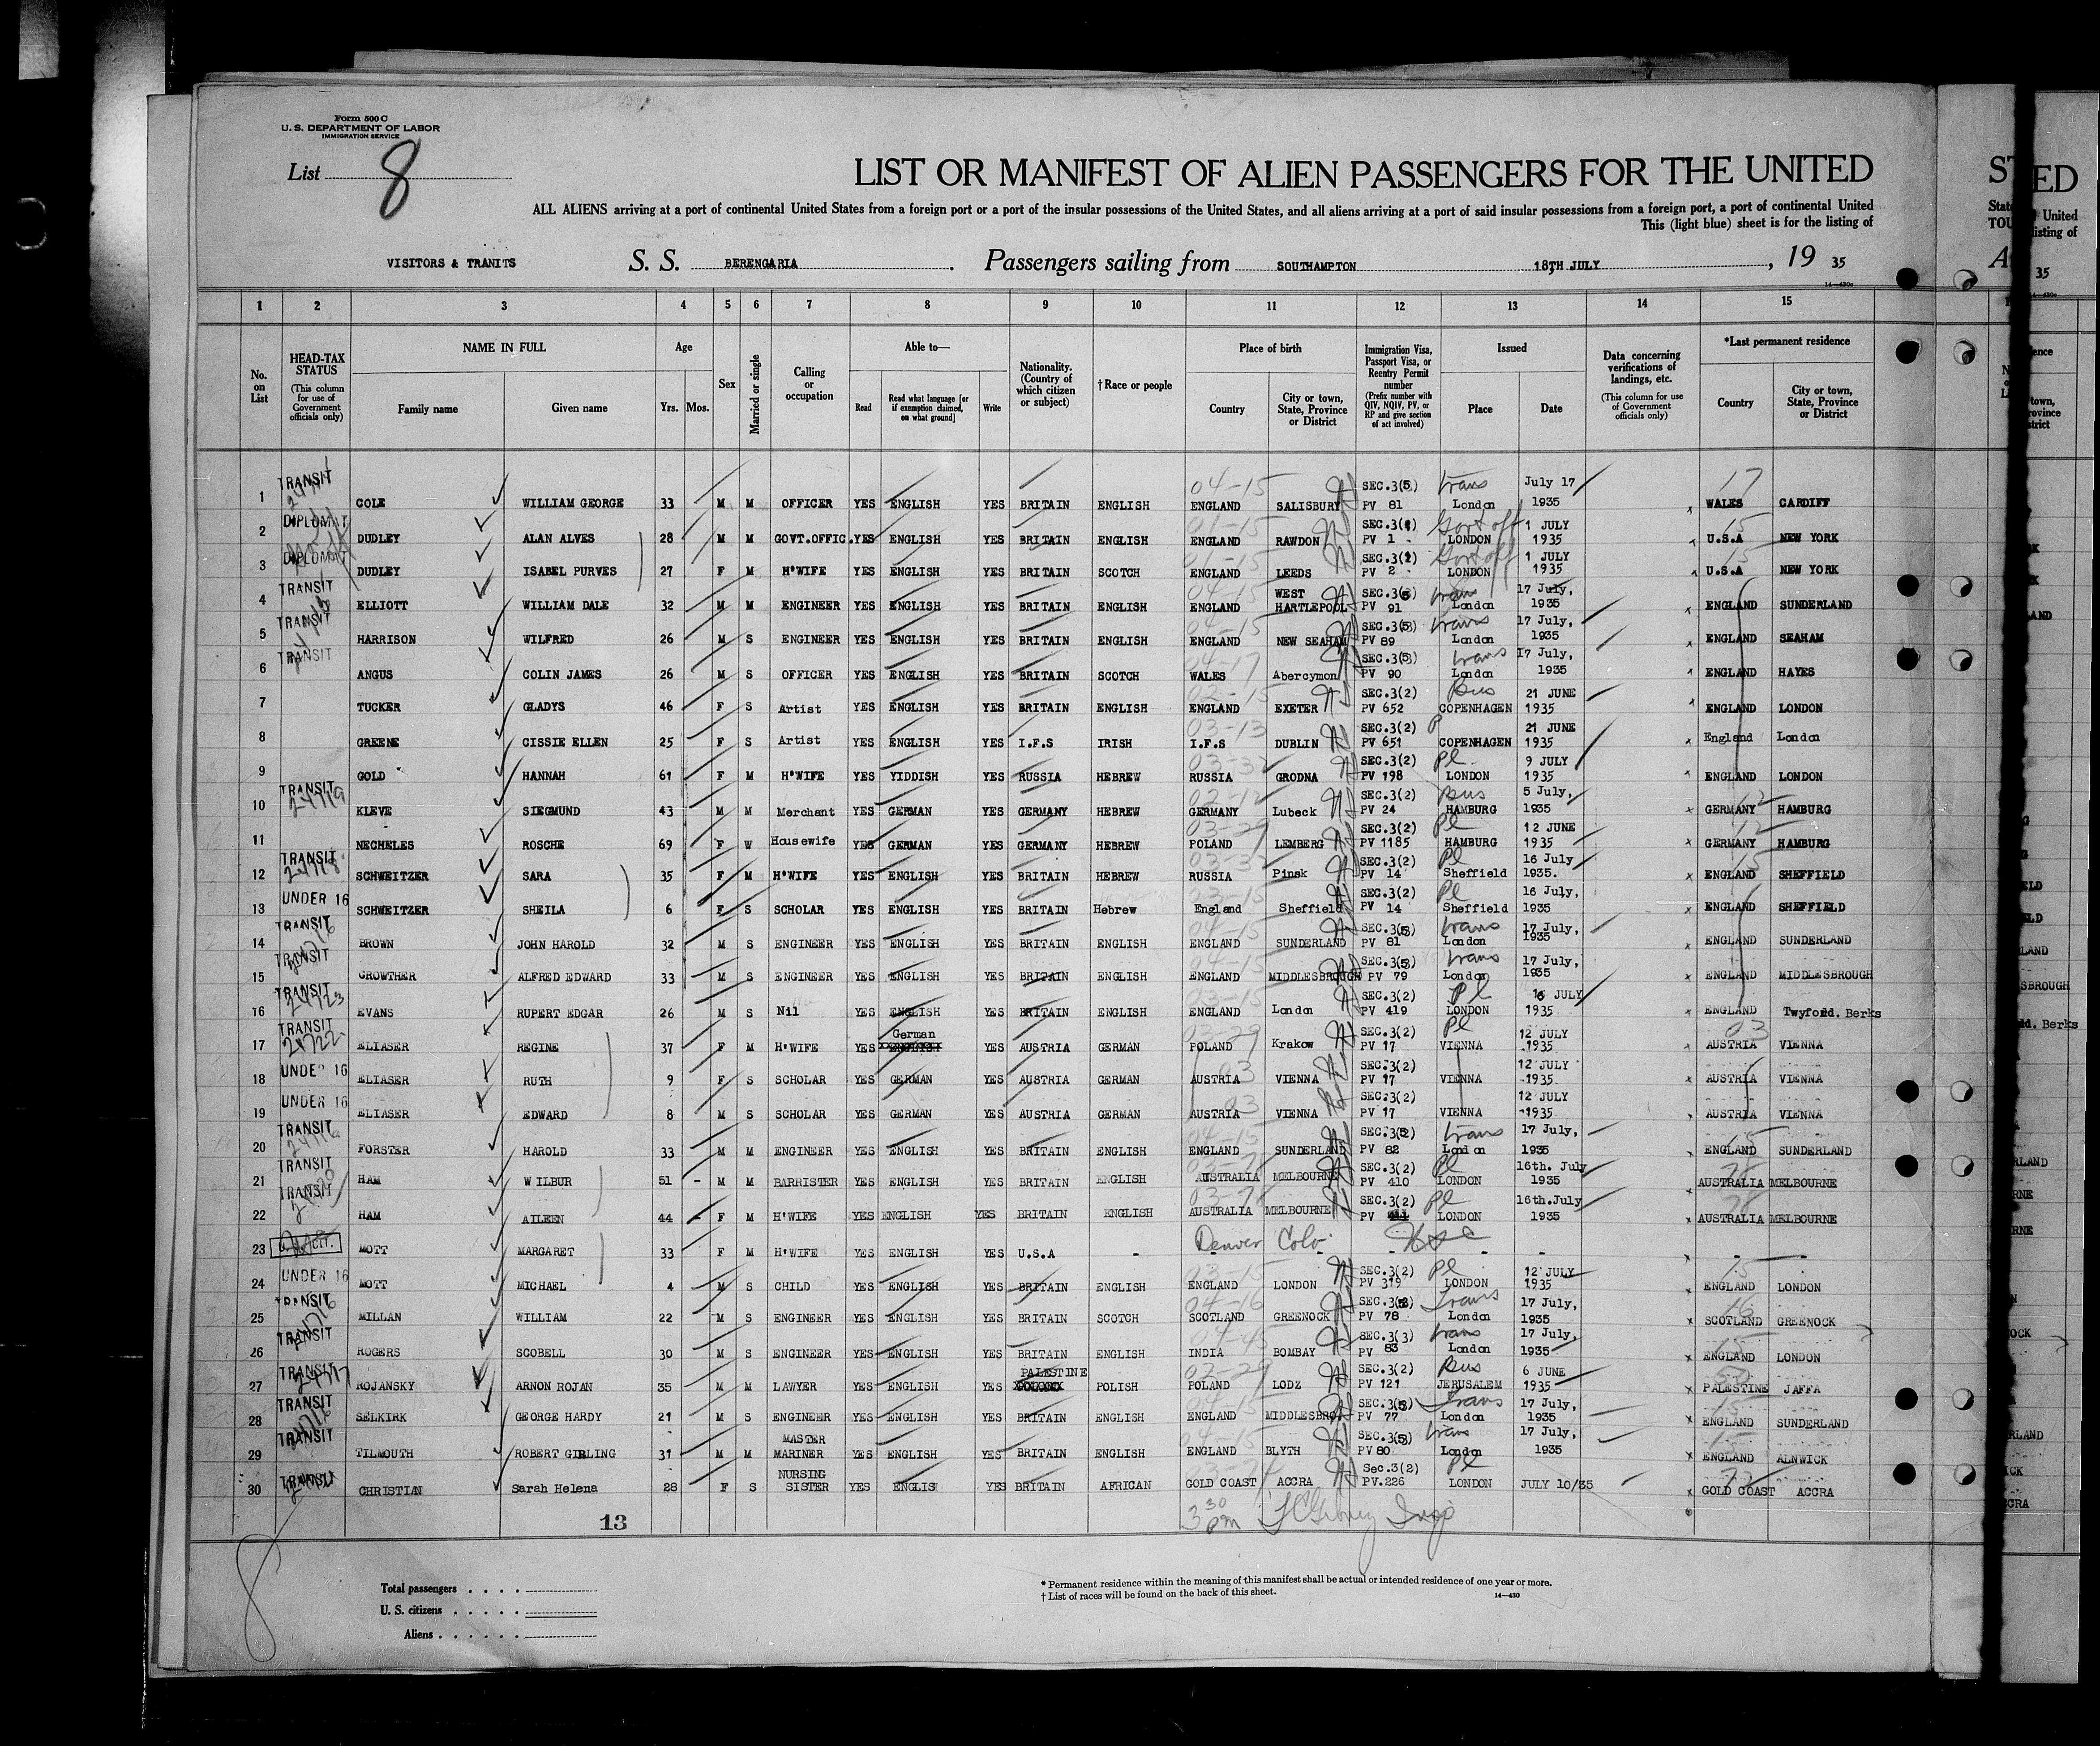 Form 500 C
U. S. DEPARTMENT OF LABOR
IMMIGRATION SERVICE
List 8
LIST OR MANIFEST OF ALIEN PASSENGERS FOR THE UNITED
ALL ALIENS arriving at a port of continental United States from a foreign port or a port of the insular possessions of the United States, and all aliens arriving at a port of said insular possessions from a foreign port, a port of continental United
This (light blue) sheet is for the listing of
VISITORS & TRANITS S. S. BERENGARIA. Passengers sailing from SOUTHAMPTON 18TH JULY, 19 35
1 2 3 4 5 6 7 8 9 10 11 12 13 14 15
No. on List
HEAD-TAX STATUS (This column for use of Government officials only)
NAME IN FULL Family name Given name
Age Yrs. Mos.
Sex
Married or single
Calling or occupation
Able to— Read Read what language [or if exemption claimed, on what ground] Write
Nationality. (Country of which citizen or subject)
†Race or people
Place of birth Country City or town, State, Province or District
Immigration Visa, Passport Visa, or Reentry Permit number (Prefix number with QIV, NQIV, PV, or RP and give section of act involved)
Issued Place Date
Data concerning verifications of landings, etc. (This column for use of Government officials only)
*Last permanent residence Country City or town, State, Province or District
1 TRANSIT COLE WILLIAM GEORGE 33 M M OFFICER YES ENGLISH YES BRITAIN ENGLISH 04-15 ENGLAND SALISBURY SEC.3(5) PV 81 trans London July 17 1935 17 WALES CARDIFF
2 DIPLOMAT DUDLEY ALAN ALVES 28 M M GOVT.OFFIC. YES ENGLISH YES BRITAIN ENGLISH 01-15 ENGLAND RAWDON SEC.3(1) PV 1 Govt off LONDON 1 JULY 1935 15 U.S.A NEW YORK
3 DIPLOMAT DUDLEY ISABEL PURVES 27 F M H'WIFE YES ENGLISH YES BRITAIN SCOTCH 01-15 ENGLAND LEEDS SEC.3(1) PV 2 Govt off LONDON 1 JULY 1935 15 U.S.A NEW YORK
4 TRANSIT ELLIOTT WILLIAM DALE 32 M M ENGINEER YES ENGLISH YES BRITAIN ENGLISH 04-15 ENGLAND WEST HARTLEPOOL SEC.3(5) PV 91 trans London 17 July, 1935 ENGLAND SUNDERLAND
5 TRANSIT HARRISON WILFRED 26 M S ENGINEER YES ENGLISH YES BRITAIN ENGLISH 04-15 ENGLAND NEW SEAHAM SEC.3(5) PV 89 trans London 17 July, 1935 ENGLAND SEAHAM
6 TRANSIT ANGUS COLIN JAMES 26 M S OFFICER YES ENGLISH YES BRITAIN SCOTCH 04-17 WALES Abercymon SEC.3(5) PV 90 trans London 17 July, 1935 ENGLAND HAYES
7 TUCKER GLADYS 46 F S Artist YES ENGLISH YES BRITAIN ENGLISH 02-15 ENGLAND EXETER SEC.3(2) PV 652 Bus COPENHAGEN 21 JUNE 1935 ENGLAND LONDON
8 GREENE CISSIE ELLEN 25 F S Artist YES ENGLISH YES I.F.S IRISH 03-13 I.F.S DUBLIN SEC.3(2) PV 651 P COPENHAGEN 21 JUNE 1935 England London
9 GOLD HANNAH 61 F M H'WIFE YES YIDDISH YES RUSSIA HEBREW RUSSIA GRODNA SEC.3(2) PV 198 Pl LONDON 9 JULY 1935 ENGLAND LONDON
10 TRANSIT KLEVE SIEGMUND 43 M M Merchant YES GERMAN YES GERMANY HEBREW 02-12 GERMANY Lubeck SEC.3(2) PV 24 Bus HAMBURG 5 July, 1935 12 GERMANY HAMBURG
11 NECHELES ROSCHE 69 F W Housewife YES GERMAN YES GERMANY HEBREW 03-29 POLAND LEMBERG SEC.3(2) PV 1185 Pl HAMBURG 12 JUNE 1935 12 GERMANY HAMBURG
12 TRANSIT SCHWEITZER SARA 35 F M H'WIFE YES ENGLISH YES BRITAIN HEBREW RUSSIA Pinsk SEC.3(2) PV 14 Pl Sheffield 16 July 1935. 15 ENGLAND SHEFFIELD
13 UNDER 16 SCHWEITZER SHEILA 6 F S SCHOLAR YES ENGLISH YES BRITAIN Hebrew 03-15 England Sheffield SEC.3(2) PV 14 Pl Sheffield 16 July, 1935 ENGLAND SHEFFIELD
14 TRANSIT BROWN JOHN HAROLD 32 M S ENGINEER YES ENGLISH YES BRITAIN ENGLISH 04-15 ENGLAND SUNDERLAND SEC.3(5) PV 81 trans London 17 July, 1935 ENGLAND SUNDERLAND
15 TRANSIT CROWTHER ALFRED EDWARD 33 M S ENGINEER YES ENGLISH YES BRITAIN ENGLISH 04-15 ENGLAND MIDDLESBROUGH SEC.3(5) PV 79 trans London 17 July, 1935 ENGLAND MIDDLESBROUGH
16 TRANSIT 24723 EVANS RUPERT EDGAR 26 M S Nil YES ENGLISH YES BRITAIN ENGLISH 03-15 ENGLAND London SEC.3(2) PV 419 Pl LONDON 16 JULY 1935 ENGLAND Twyford. Berks
17 TRANSIT 24722 ELIASER REGINE 37 F M H'WIFE YES German YES AUSTRIA GERMAN 03-29 POLAND Krakow SEC.3(2) PV 17 Pl VIENNA 12 JULY 1935 03 AUSTRIA VIENNA
18 UNDER 16 ELIASER RUTH 9 F S SCHOLAR YES GERMAN YES AUSTRIA GERMAN 03 AUSTRIA VIENNA SEC.3(2) PV 17 VIENNA 12 JULY 1935 AUSTRIA VIENNA
19 UNDER 16 ELIASER EDWARD 8 M S SCHOLAR YES GERMAN YES AUSTRIA GERMAN 03 AUSTRIA VIENNA SEC.3(2) PV 17 VIENNA 12 JULY 1935 AUSTRIA VIENNA
20 TRANSIT FORSTER HAROLD 33 M M ENGINEER YES ENGLISH YES BRITAIN ENGLISH 04-15 ENGLAND SUNDERLAND PV 82 trans London 17 July, 1935 15 ENGLAND SUNDERLAND
21 TRANSIT HAM WILBUR 51 - M M BARRISTER YES ENGLISH YES BRITAIN ENGLISH AUSTRALIA MELBOURNE SEC.3(2) PV 410 Pl LONDON 16th. July 1935 AUSTRALIA MELBOURNE
22 TRANSIT HAM AILEEN 44 - F M H'WIFE YES ENGLISH YES BRITAIN ENGLISH AUSTRALIA MELBOURNE SEC.3(2) PV 411 Pl LONDON 16th.July 1935 AUSTRALIA MELBOURNE
23 MOTT MARGARET 33 F M H'WIFE YES ENGLISH YES U.S.A - Denver Colo. - - - - -
24 UNDER 16 MOTT MICHAEL 4 M S CHILD YES ENGLISH YES BRITAIN ENGLISH 03-15 ENGLAND LONDON SEC.3(2) PV 319 Pl LONDON 12 JULY 1935 15 ENGLAND LONDON
25 TRANSIT MILLAN WILLIAM 22 M S ENGINEER YES ENGLISH YES BRITAIN SCOTCH 04-16 SCOTLAND GREENOCK PV 78 Trans London 17 July, 1935 16 SCOTLAND GREENOCK
26 TRANSIT ROGERS SCOBELL 30 M S ENGINEER YES ENGLISH YES BRITAIN ENGLISH 04-45 INDIA BOMBAY SEC.3(3) PV 83 trans London 17 July, 1935 15 ENGLAND LONDON
27 TRANSIT ROJANSKY ARNON ROJAN 35 M M LAWYER YES ENGLISH YES PALESTINE POLISH 02-29 POLAND LODZ SEC.3(2) PV 121 Bus JERUSALEM 6 JUNE 1935 PALESTINE JAFFA
28 TRANSIT SELKIRK GEORGE HARDY 21 M S ENGINEER YES ENGLISH YES BRITAIN ENGLISH 04-15 ENGLAND MIDDLESBRO. SEC.3(5) PV 77 Trans London 17 July, 1935 15 ENGLAND SUNDERLAND
29 TRANSIT TILMOUTH ROBERT GIRLING 31 M M MASTER MARINER YES ENGLISH YES BRITAIN ENGLISH 04-15 ENGLAND BLYTH SEC.3(5) PV 80 trans London 17 July, 1935 15 ENGLAND ALNWICK
30 TRANSIT CHRISTIAN Sarah Helena 28 F S NURSING SISTER YES ENGLIS YES BRITAIN AFRICAN GOLD COAST ACCRA Sec.3(2) PV.226 Pl LONDON JULY 10/35 GOLD COAST ACCRA
13
3 30 pm
8
Total passengers . . . .
U. S. citizens . . . . .
Aliens . . . . . .
* Permanent residence within the meaning of this manifest shall be actual or intended residence of one year or more.
† List of races will be found on the back of this sheet.
14—430